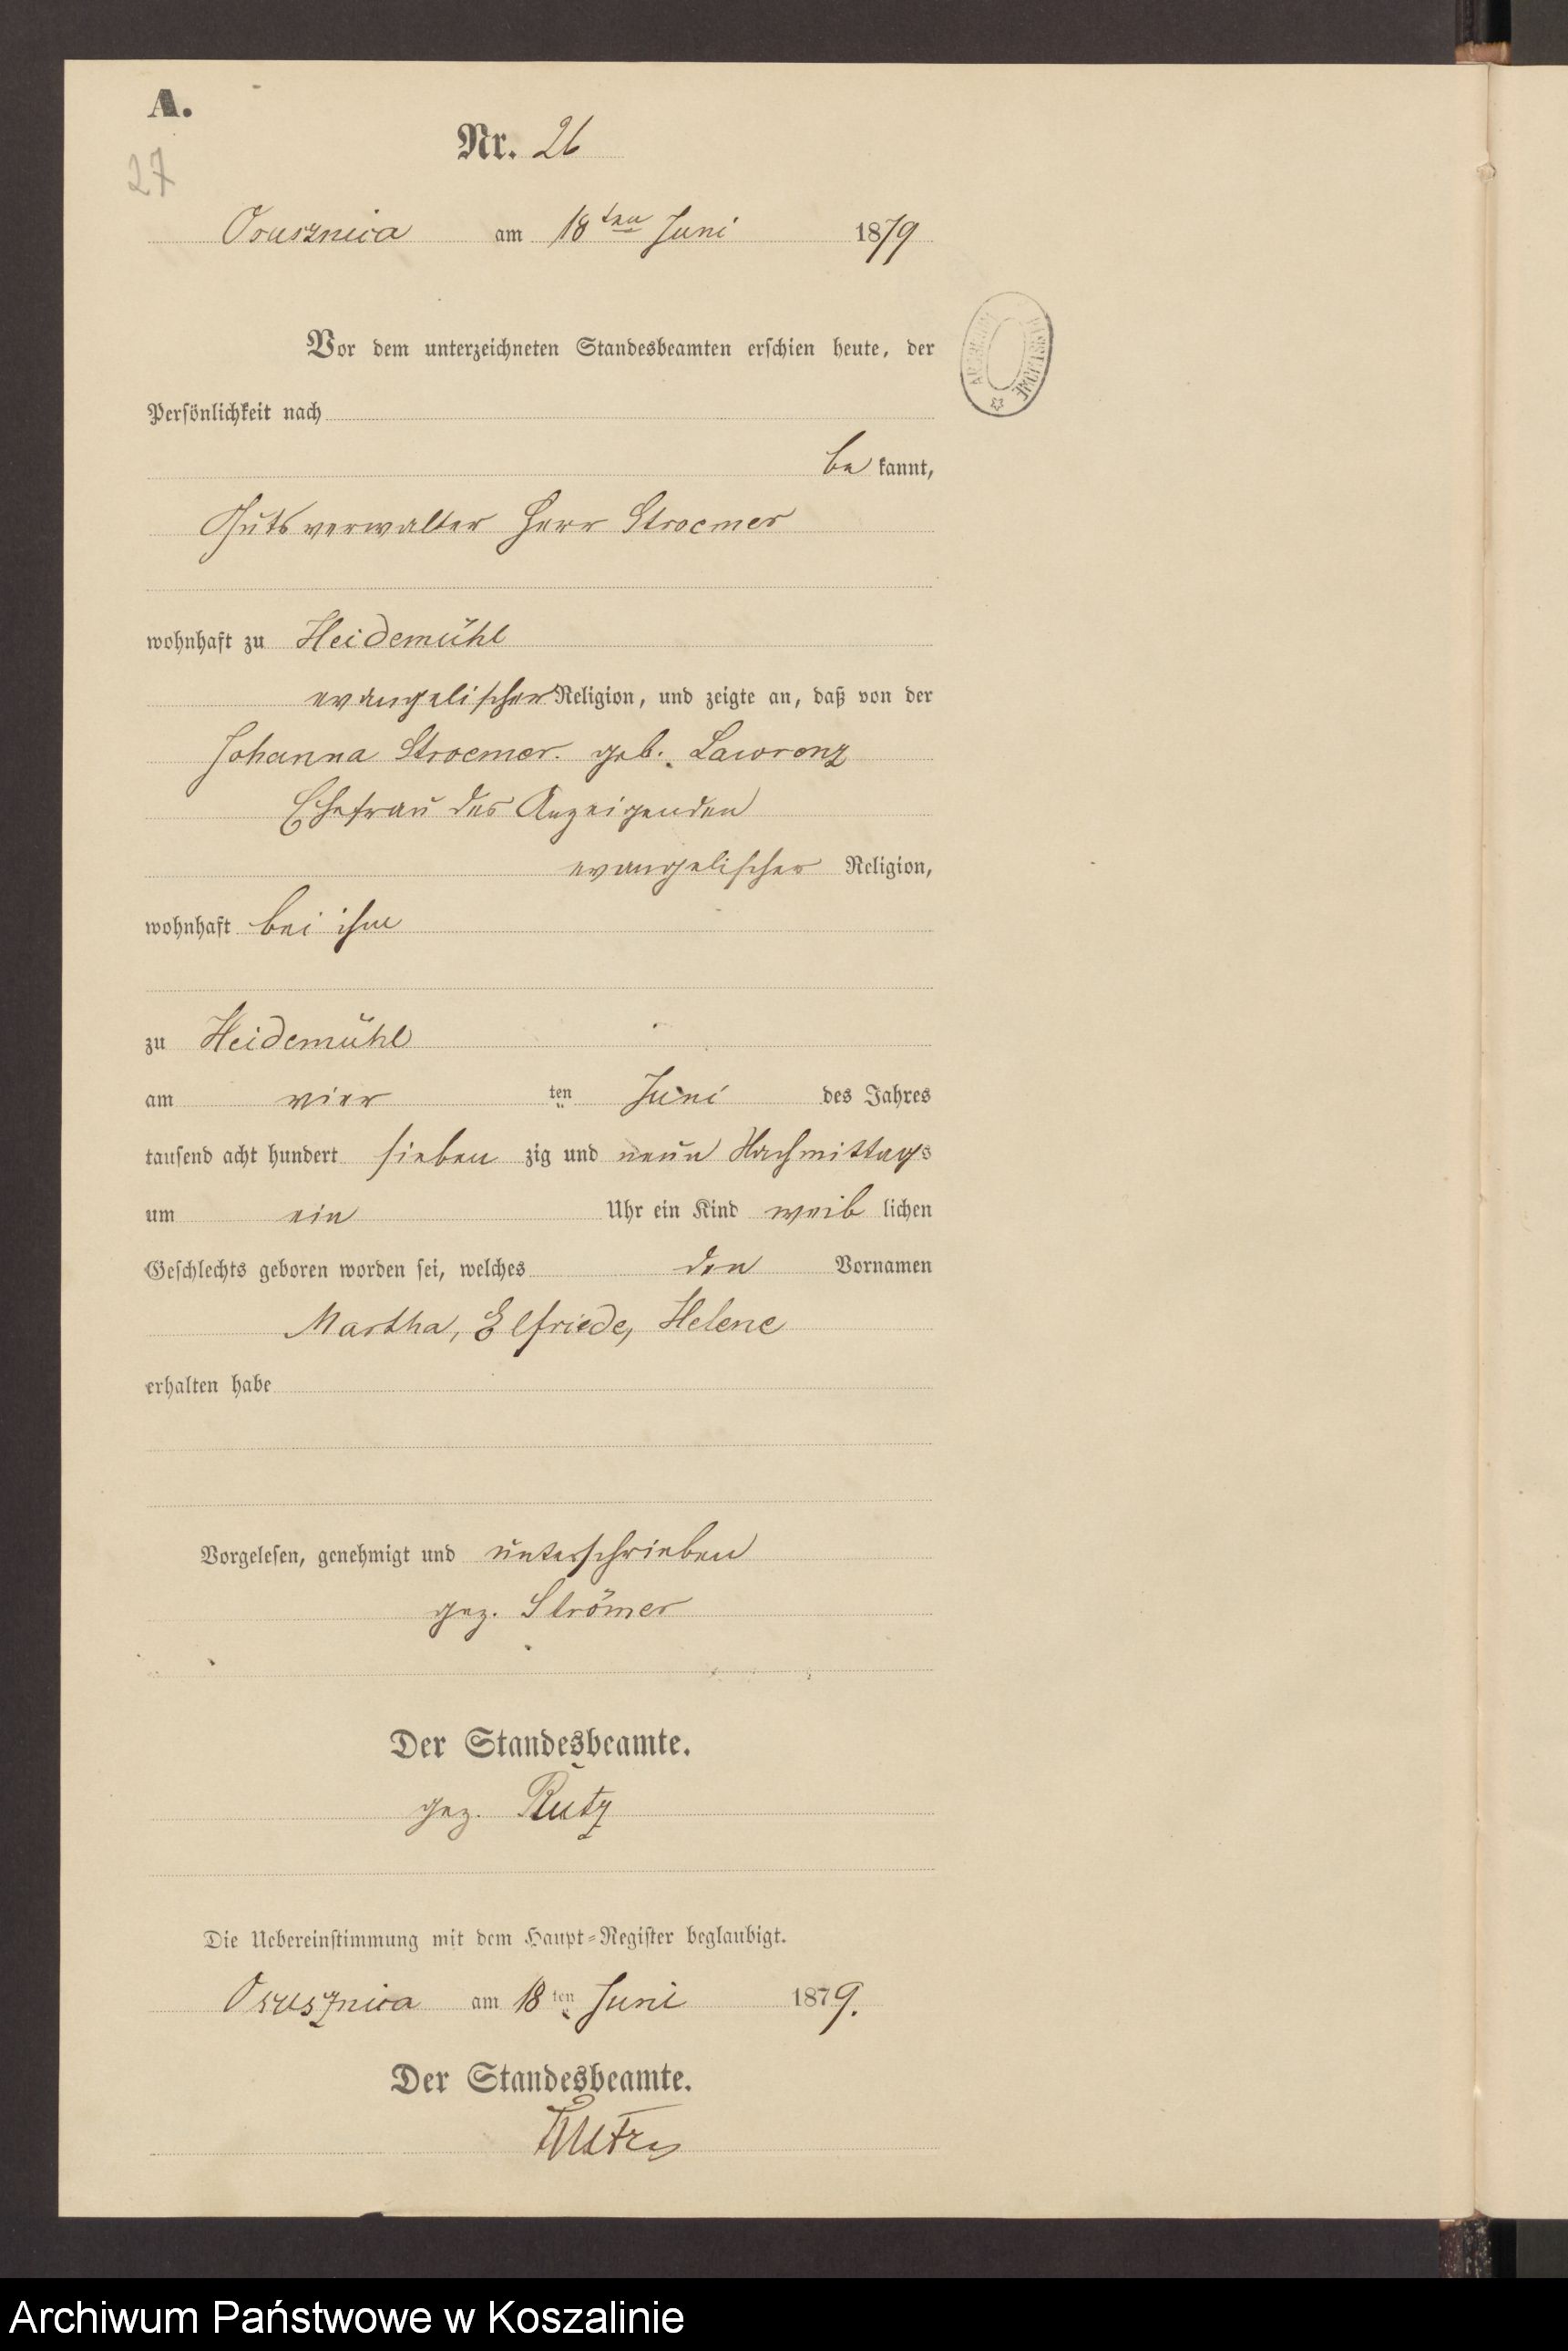 A.
Nr. 26
27
Osusznica am 18ten Juni 1879
Vor dem unterzeichneten Standesbeamten erschien heute, der
Persönlichkeit nach
be kannt,
Gutsverwalter Herr Stroemer
wohnhaft zu Heidemühl
evangelischer Religion, und zeigte an, daß von der
Johanna Stroemer. geb. Lawrenz
Ehefrau des Anzeigenden
evangelischer Religion,
wohnhaft bei ihm
zu Heidemühl
am vier ten Juni des Jahres
tausend acht hundert sieben zig und neun Nachmittags
um ein Uhr ein Kind weib lichen
Geschlechts geboren worden sei, welches den Vornamen
Martha, Elfriede, Helene
erhalten habe
Vorgelesen, genehmigt und unterschrieben
gez. Strömer
Der Standesbeamte.
gez. Rutz
Die Uebereinstimmung mit dem Haupt-Register beglaubigt.
Osusznica am 18ten Juni 1879.
Der Standesbeamte.
ARCHIWUM PAŃSTWOWE
Archiwum Państwowe w Koszalinie